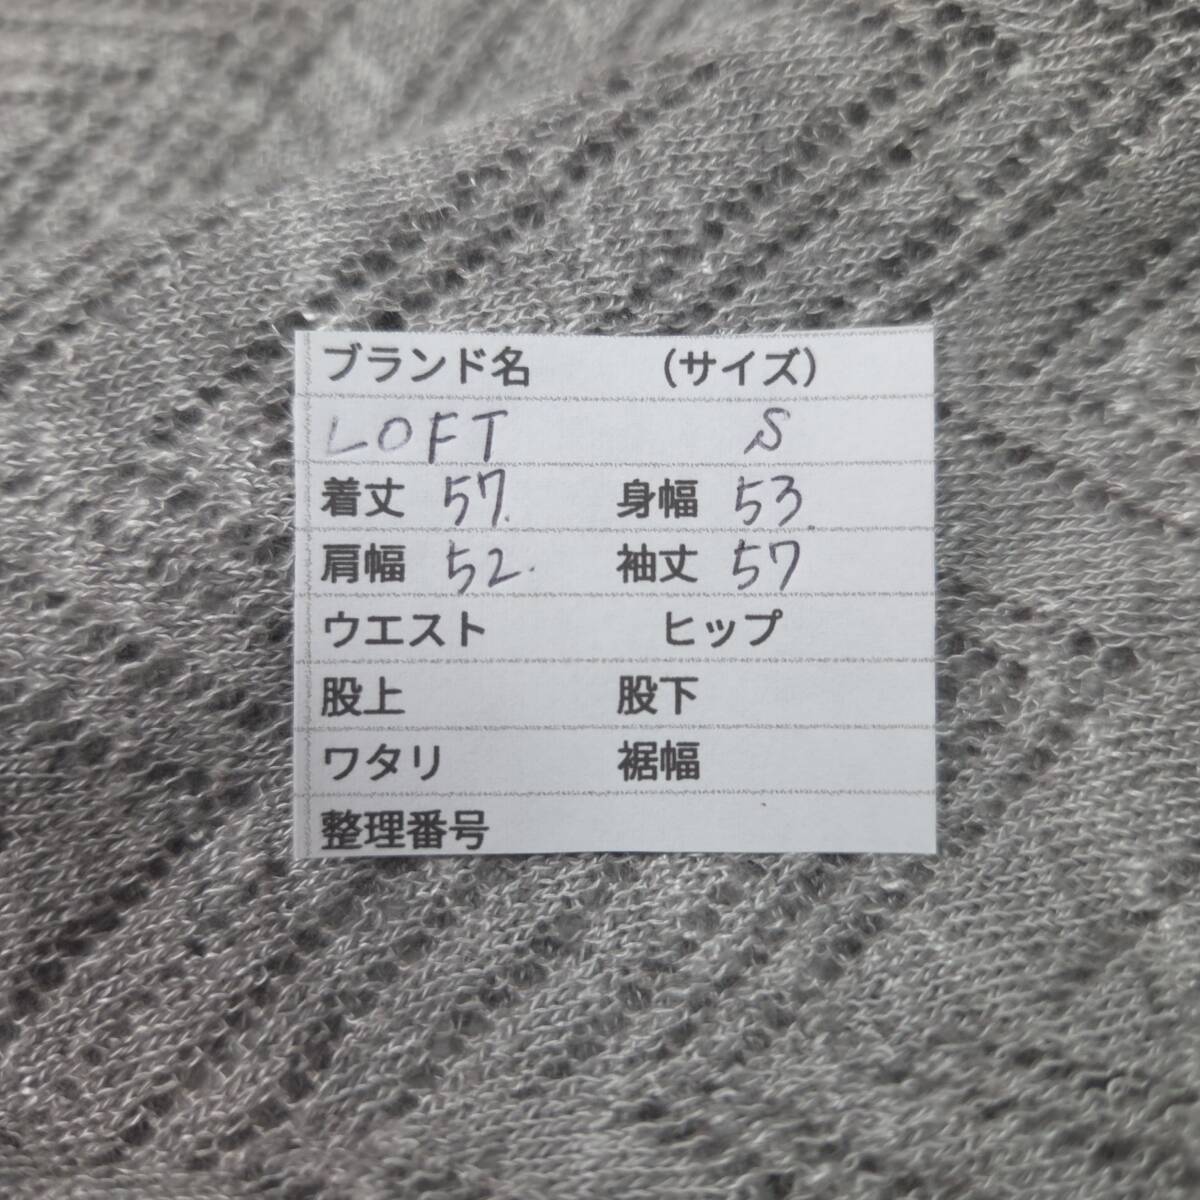 ブランド名 (サイズ)
LOFT S
着丈 57. 身幅 53.
肩幅 52. 袖丈 57
ウエスト ヒップ
股上 股下
ワタリ 裾幅
整理番号